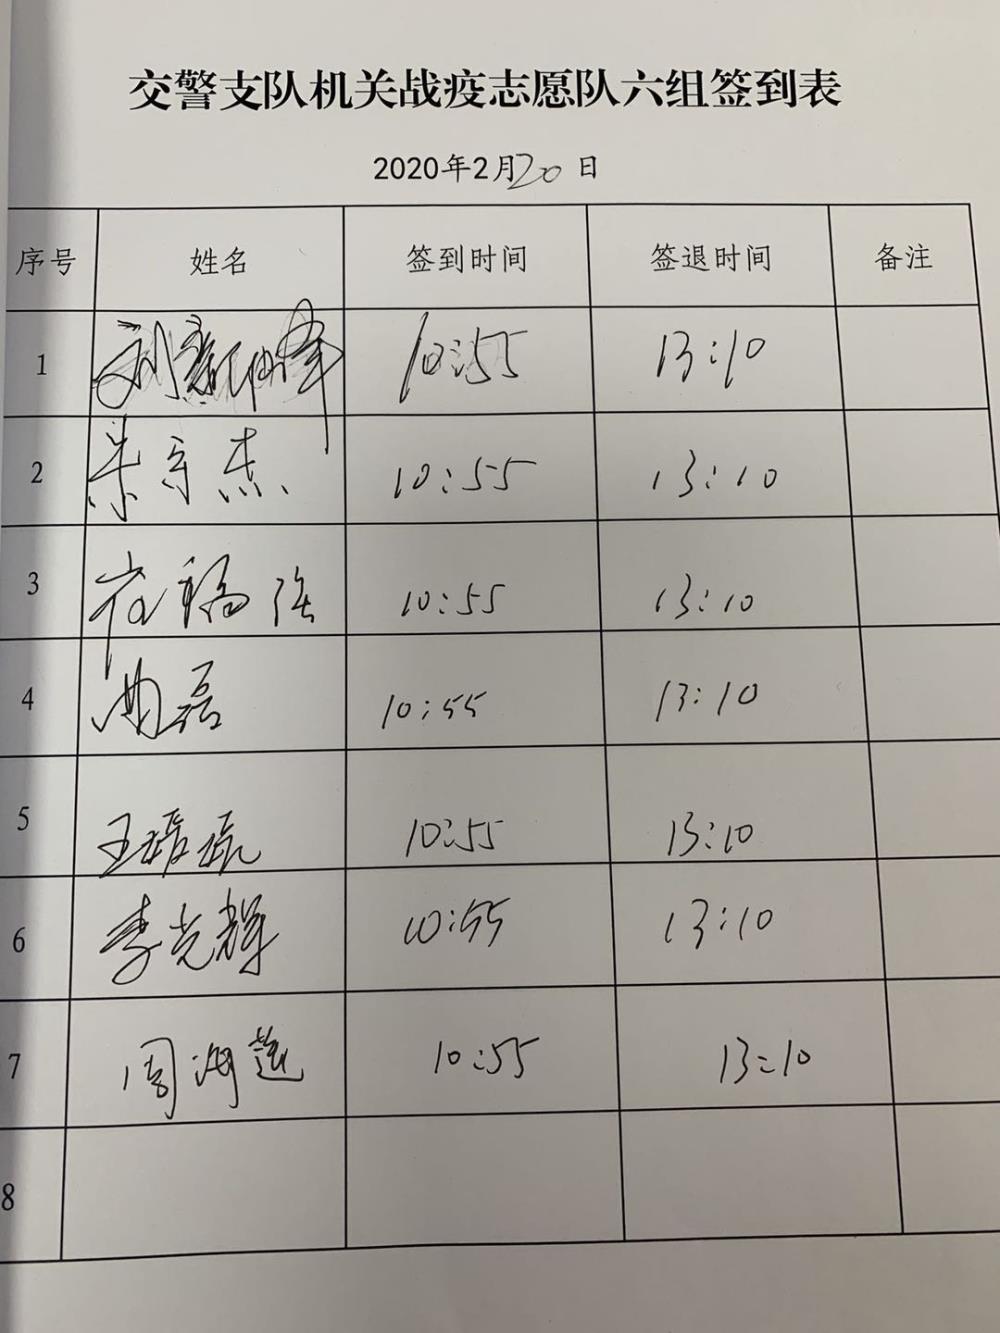 交警支队机关战疫志愿队六组签到表
2020年2月20日
序号 姓名 签到时间 签退时间 备注
1 10:55 13:10
2 朱守杰 10:55 13:10
3 崔福强 10:55 13:10
4 曲磊 10:55 13:10
5 王 10:55 13:10
6 李光辉 10:55 13:10
7 周海莲 10:55 13:10
8